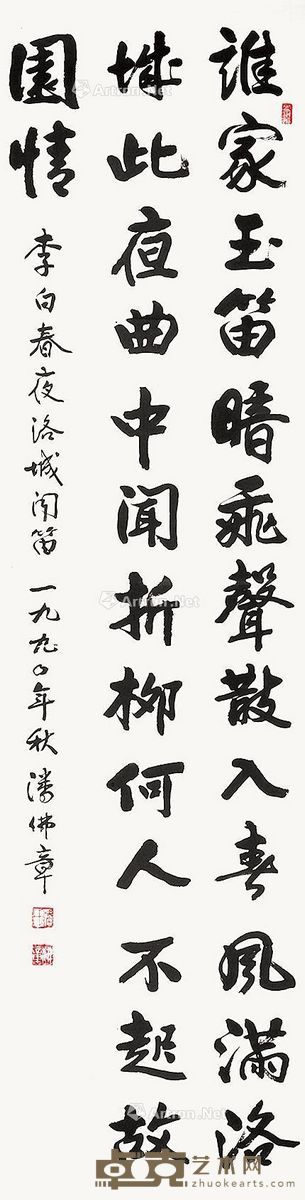 誰家玉笛暗飛聲散入春風滿洛
城此夜曲中聞折柳何人不起故
園情
李白春夜洛城闻笛 一九九〇年秋 潘佛章
Artron.Net
Artron.Net
Artron.Net
Artron.Net
卓克艺术网
www.zhuokearts.com